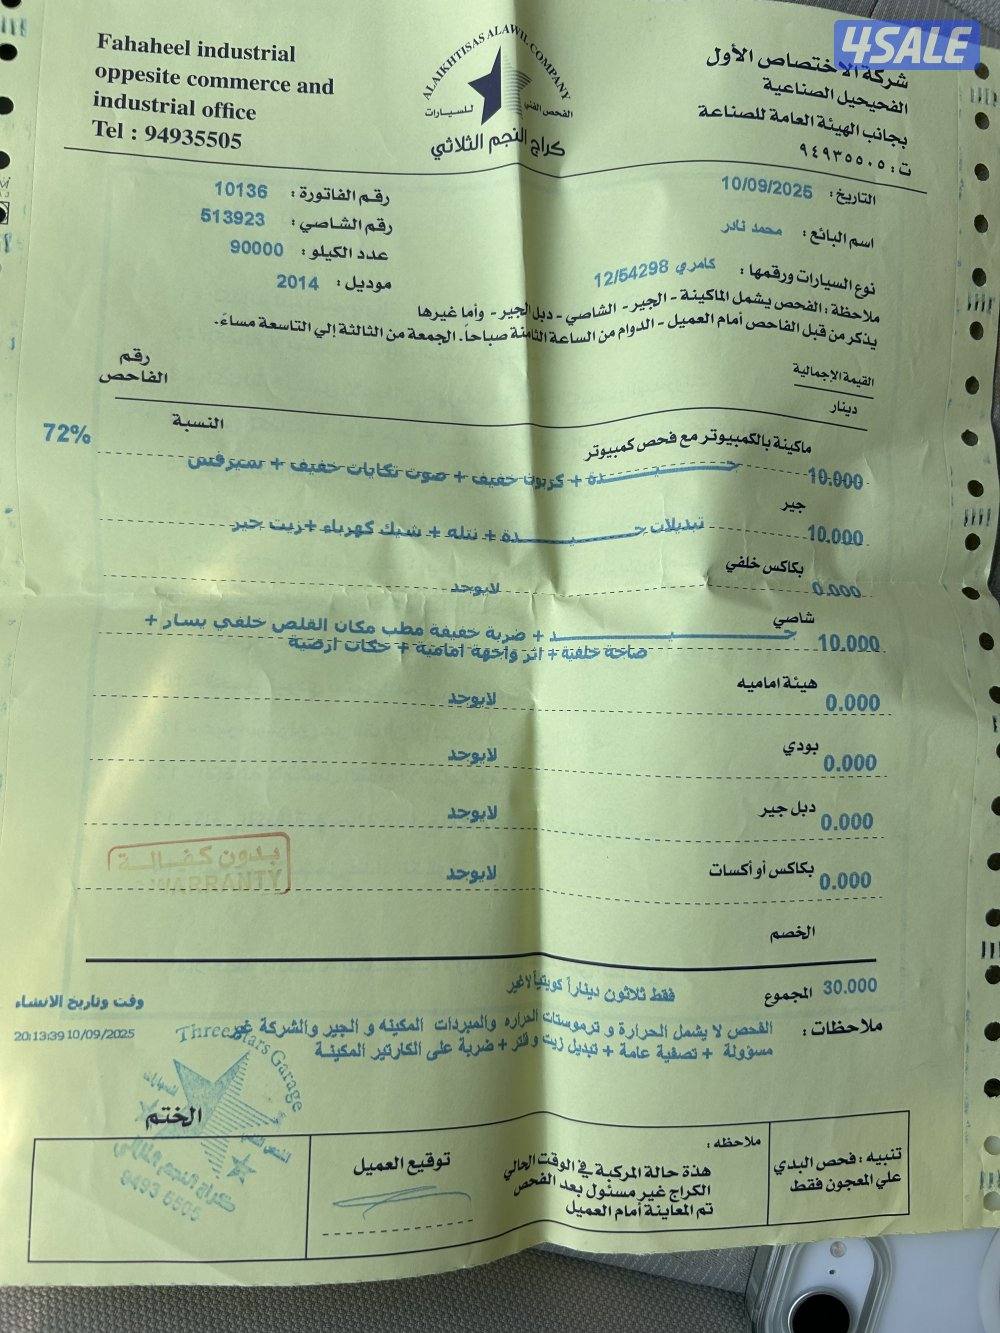 4SALE
Fahaheel industrial
oppesite commerce and
industrial office
Tel : 94935505
ALAIKHTISAS ALAWIL COMPANY
الفحص الفني للسيارات
كراج النجم الثلاثي
شركة الاختصاص الأول
الفحيحيل الصناعية
بجانب الهيئة العامة للصناعة
ت : ٩٤٩٣٥٥٠٥
التاريخ : 10/09/2025
رقم الفاتورة : 10136
اسم البائع : محمد نادر
رقم الشاصي : 513923
نوع السيارات ورقمها : كامري 12/54298
عدد الكيلو : 90000
موديل : 2014
ملاحظة : الفحص يشمل الماكينة - الجير - الشاصي - دبل الجير - وأما غيرها
يذكر من قبل الفاحص أمام العميل - الدوام من الساعة الثامنة صباحاً . الجمعة من الثالثة إلي التاسعة مساءً .
القيمة الإجمالية
دينار
رقم
الفاحص
النسبة
ماكينة بالكمبيوتر مع فحص كمبيوتر
72%
10.000 جـــيـــدة + كربون خفيف + صوت تكايات خفيف + سيرفس
جير
10.000 تبديلات جـــيـــدة + نتله + شيك كهرباء +زيت جير
بكاكس خلفي
0.000 لايوجد
شاصي
10.000 جـــيـــد + ضربة خفيفة مطب مكان القلص خلفي يسار +
صاجة خلفية + اثر واجهة امامية + حكات ارضية
هيئة اماميه
0.000 لايوجد
بودي
0.000 لايوجد
دبل جير
0.000 لايوجد
بكاكس أو أكسات
0.000 لايوجد
بدون كفـالـة
WARRANTY
الخصم
30.000 المجموع فقط ثلاثون ديناراً كويتياً لاغير
وقت وتاريخ الانشاء
20:13:39 10/09/2025
ملاحظات : الفحص لا يشمل الحرارة و ترموستات الحراره والمبردات المكينه و الجير والشركة غير
مسؤولة + تصفية عامة + تبديل زيت و فلتر + ضربة على الكارتير المكينة
Three Stars Garage
كراج النجم الثلاثي
9493 5505
الختم
توقيع العميل
ملاحظه :
هذة حالة المركبة في الوقت الحالي
الكراج غير مسئول بعد الفحص
تم المعاينة أمام العميل
تنبيه : فحص البدي
علي المعجون فقط